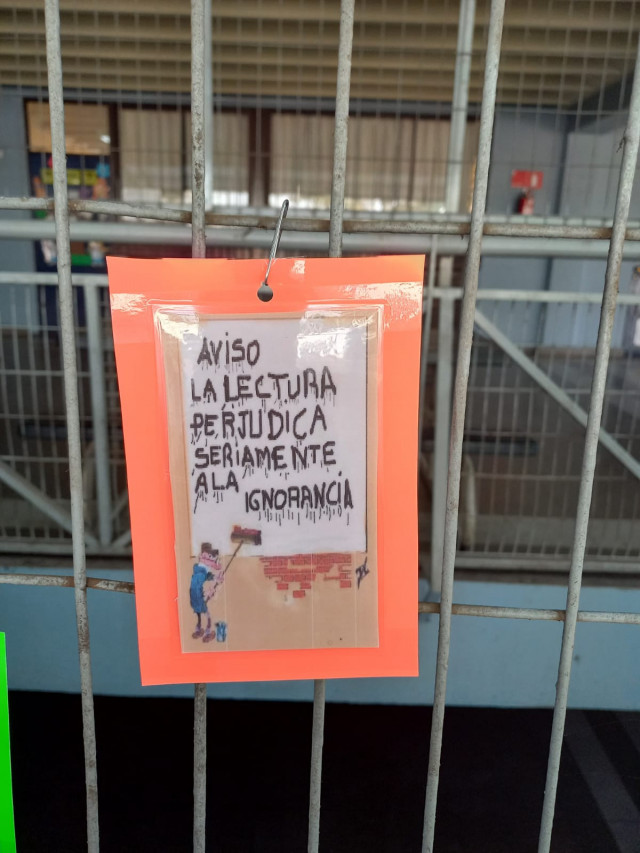 AVISO
LA LECTURA
PERJUDICA
SERIAMENTE
ALA
IGNORANCIA